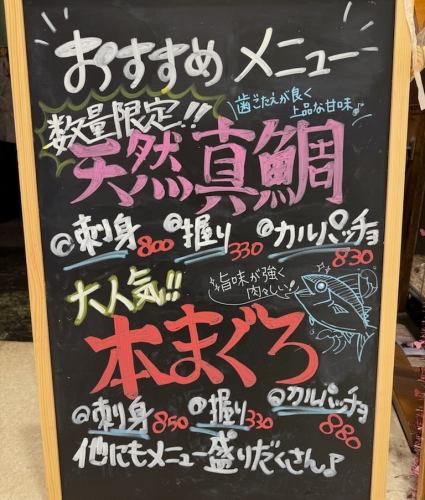 おすすめ メニュー
数量限定!!
歯ごたえが良く
上品な甘味♪
天然真鯛
◎刺身 800 ◎握り 330 ◎カルパッチョ 830
大人気!!
旨味が強く
肉々しい!
本まぐろ
◎刺身 850 ◎握り 330 ◎カルパッチョ 880
他にもメニュー盛りだくさん♪